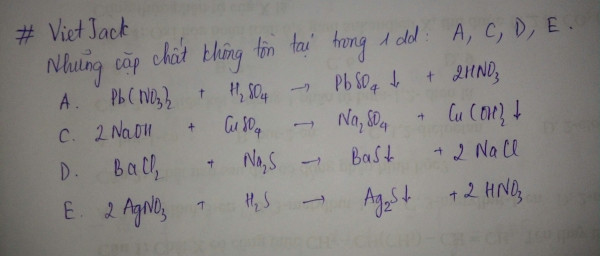 # VietJack
Những cặp chất không tồn tại trong 1 dd: A, C, D, E.
A. Pb(NO₃)₂ + H₂SO₄ → PbSO₄ ↓ + 2HNO₃
C. 2 NaOH + CuSO₄ → Na₂SO₄ + Cu(OH)₂ ↓
D. BaCl₂ + Na₂S → BaS↓ + 2 NaCl
E. 2 AgNO₃ + H₂S → Ag₂S↓ + 2 HNO₃